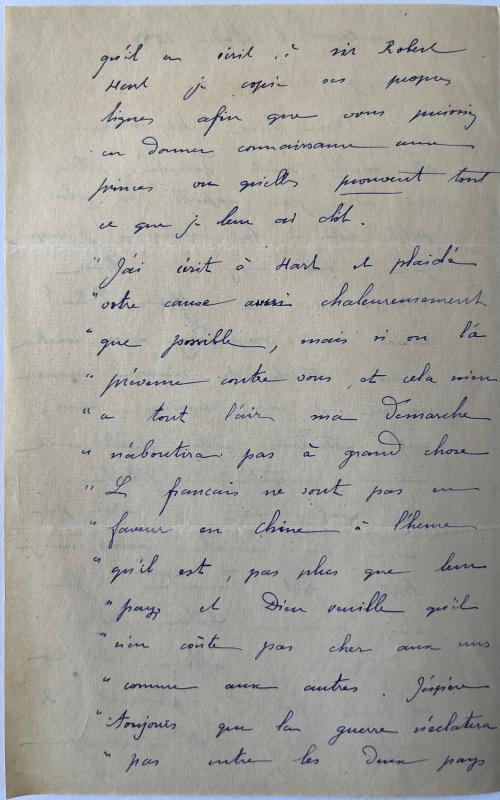 qu'il a écrit à sir Robert
Hart je copie ses propres
lignes afin que vous puissiez
en donner connaissance aux
princes vu qu'elles prouvent tout
ce que je leur ai dit.
"J'ai écrit à Hart et plaidé
"votre cause aussi chaleureusement
"que possible, mais si on l'a
"prévenu contre vous, et cela m'en
"a tout l'air ma démarche
"n'aboutira pas à grand chose
"Les français ne sont pas en
"faveur en Chine à l'heure
"qu'il est, pas plus que leur
"pays et Dieu veuille qu'il
"n'en coûte pas cher aux uns
"comme aux autres. J'espère
"Toujours que la guerre n'éclatera
"pas entre les deux pays